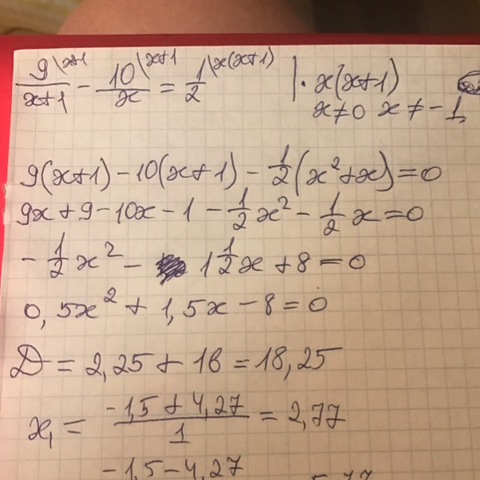 9\x+1/x+1 - 10\x+1/x = 1/2\x(x+1) | · x(x+1)
x≠0 x≠-1
9(x+1)-10(x+1)-1/2(x²+x)=0
9x+9-10x-1-1/2x²-1/2x=0
-1/2x² - 1 1/2x+8=0
0,5x²+1,5x-8=0
D=2,25+16=18,25
x₁ = -1,5+4,27/1 = 2,77
-1,5-4,27